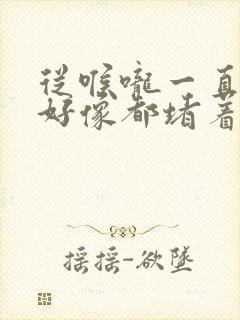 從喉嚨一直
好像都堵着
摇摇-欲墜